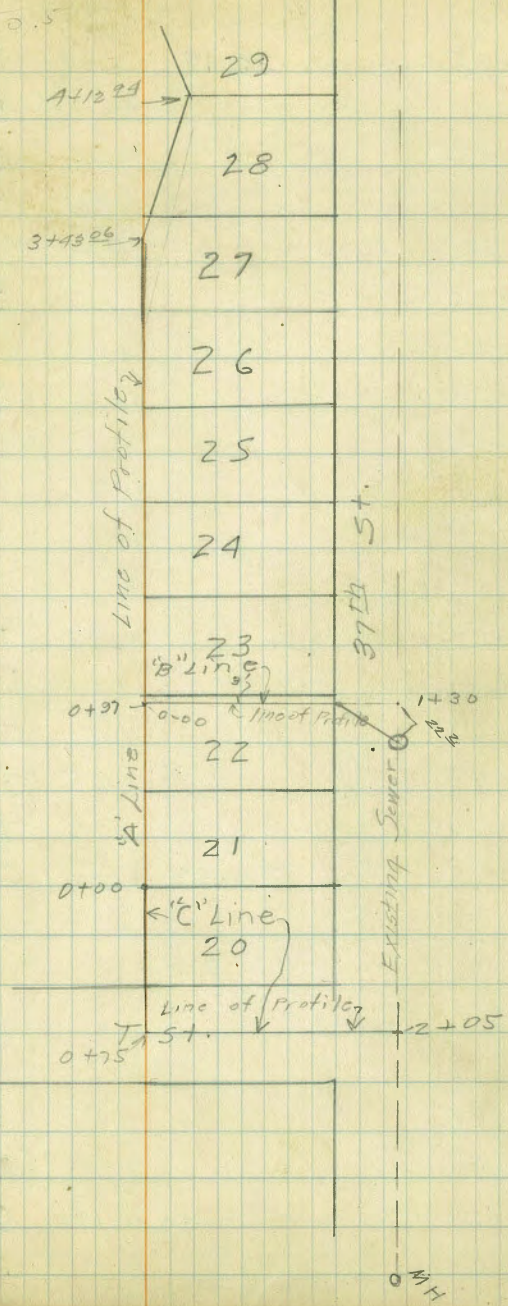 0.5
29
4+12 94
28
3+43 06
27
26
Line of Profile
25
24
37th St.
23
"B" Line
3'
0+97
0-00
line of Profile
1+30
22
"A" Line
21
Existing Sewer
0+00
"C" Line
20
Line of Profile
T St.
2+05
0+75
MH